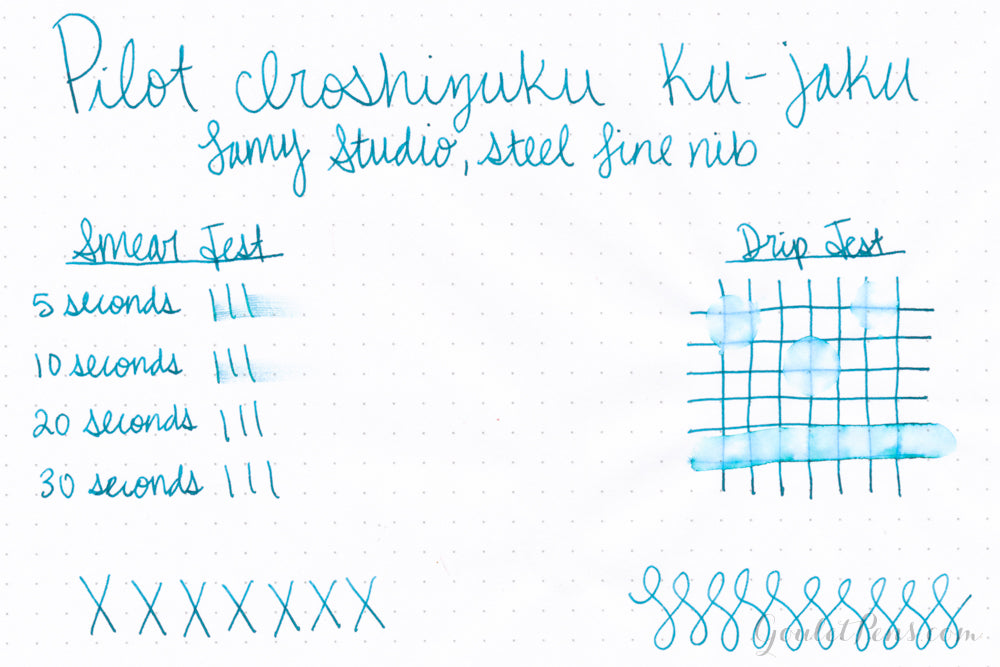 Pilot Iroshizuku Ku-jaku
Lamy Studio, steel fine nib
Smear Test
5 seconds
10 seconds
20 seconds
30 seconds
Drip Test
X X X X X X X
GouletPens.com